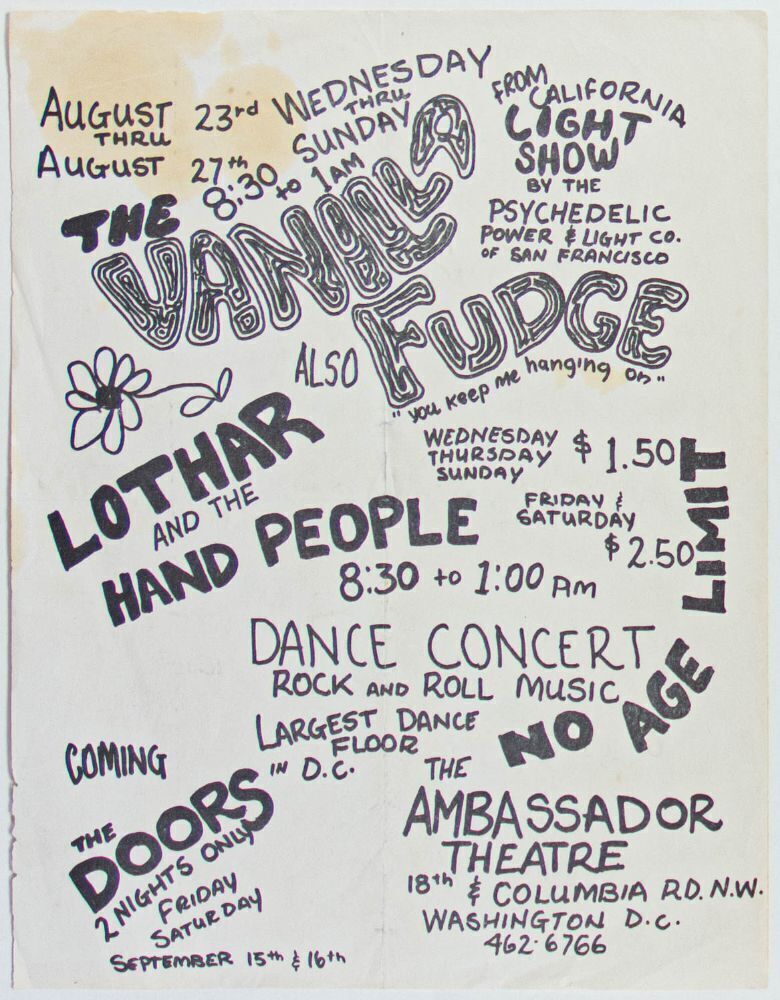 AUGUST 23rd
THRU
AUGUST 27th
WEDNESDAY
THRU
SUNDAY
8:30 to 1AM
FROM
CALIFORNIA
LIGHT
SHOW
BY THE
PSYCHEDELIC
POWER & LIGHT CO.
OF SAN FRANCISCO
THE
VANILLA
FUDGE
"you keep me hanging on"
ALSO
LOTHAR
AND THE
HAND PEOPLE
WEDNESDAY
THURSDAY
SUNDAY
$1.50
FRIDAY &
SATURDAY
$2.50
8:30 to 1:00 AM
NO AGE LIMIT
DANCE CONCERT
ROCK AND ROLL MUSIC
LARGEST DANCE
FLOOR
IN D.C.
COMING
THE
DOORS
2 NIGHTS ONLY
FRIDAY
SATURDAY
SEPTEMBER 15th & 16th
THE
AMBASSADOR
THEATRE
18th & COLUMBIA RD. N.W.
WASHINGTON D.C.
462-6766